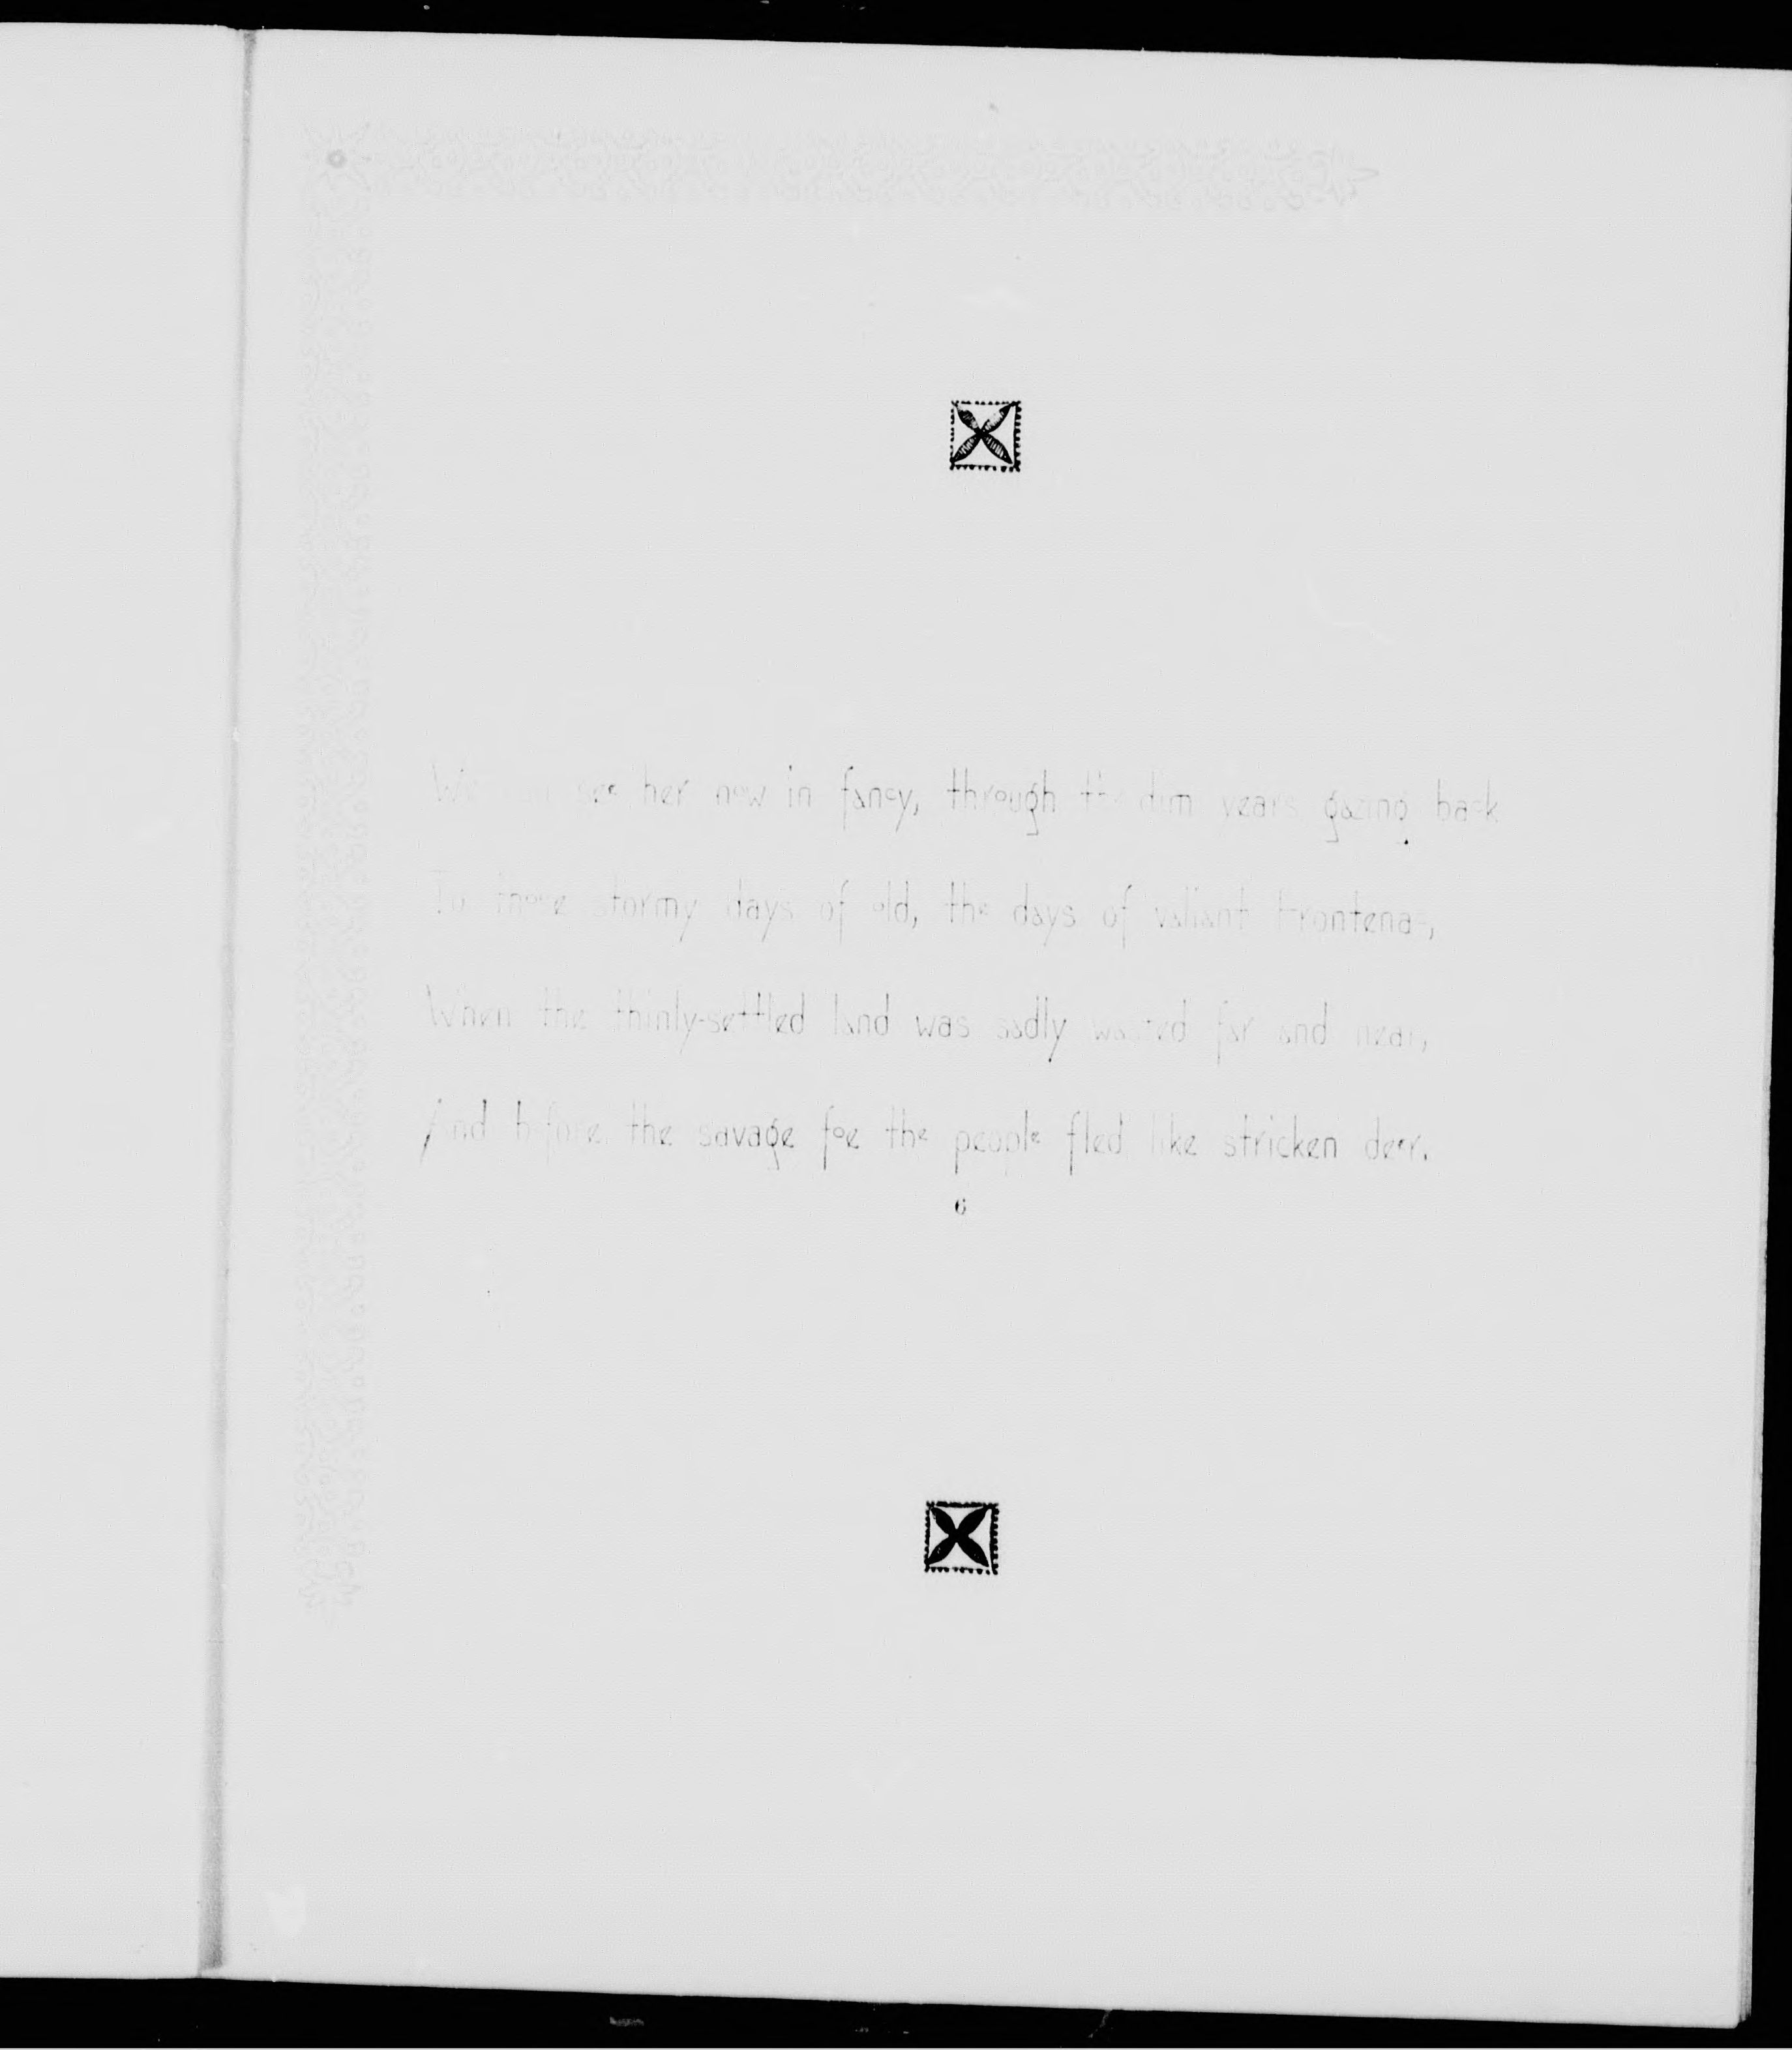 We can see her now in fancy, through the dim years gazing back
To those stormy days of old, the days of valiant Frontenac,
When the thinly-settled land was sadly wasted far and near,
And before the savage foe the people fled like stricken deer.
6